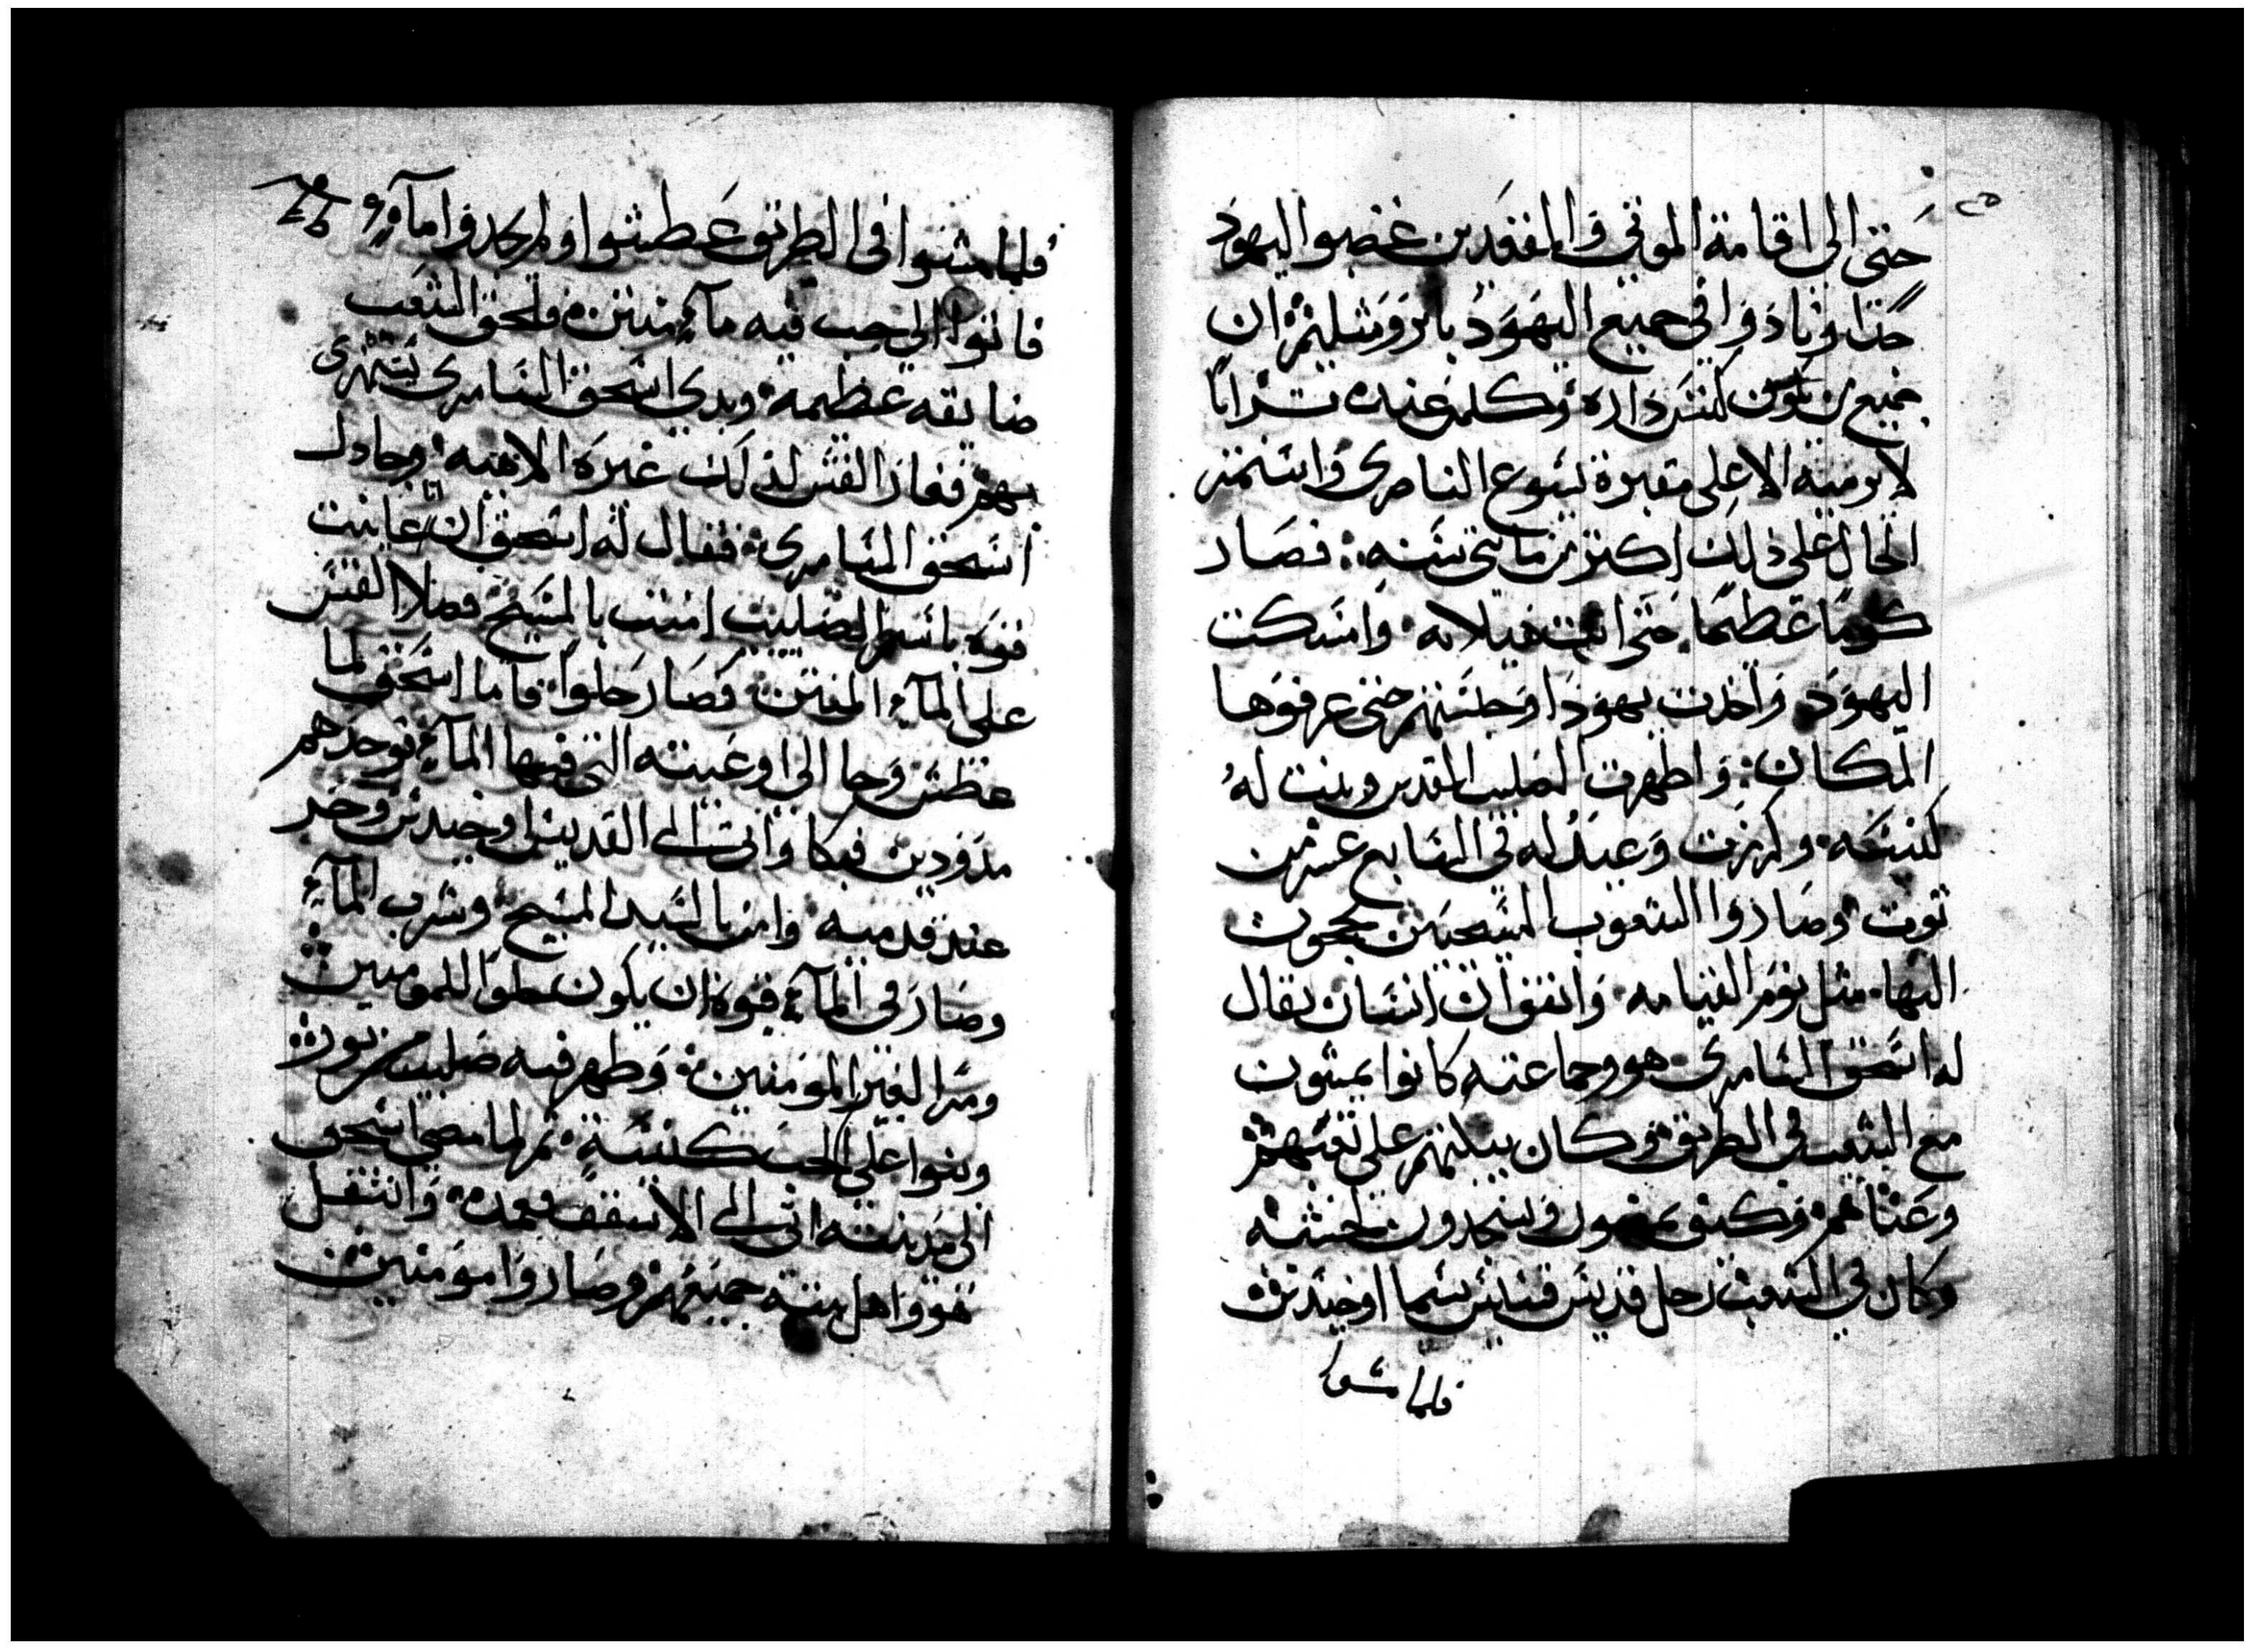 حتى الى اقامة الموتى والمقعدين غضبوا اليهود
جدا ونادوا فى جميع اليهود بايروشليم ان
جميع من يكون كنس داره وكلمن عنده تراب
لا يرميه الا على مقبرة يسوع الناصرى واستمر
الحال على ذلك اكتر من مايتى سنه فصار
كوما عظيما حتى اتت هيلانه وامسكت
اليهود واخدت يهودا وحبستهم حتى عرفوها
المكان واظهرت الصليب المقدس وبنت له
كنيسه وكرزت وعيد له فى السابع عشر من
توت وصاروا الشعوب المسيحيين يحجون
اليها مثل يوم القيامه واتفق ان انسان يقال
له اسحق السامرى هو وجماعته كانوا يمشون
مع الشعب فى الطريق وكان يبكتهم على تعبهم
وعناهم وكيف يمضون ويسجدون لخشبه
وكان فى الشعب رجل قديس قسيس يسما اوخيدس
فلما مشوا
فلما مشوا فى الطريق عطشوا ولم يجدوا مآء
فاتوا الى جب فيه مآء منتن ولحق الشعب
ضايقه عظيمه وبدى اسحق السامرى يستهزى
بهم فغار القس لذلك غيره الاهيه وجادل
اسحق السامرى فقال له اسحق ان انا عاينت
قوه باسم الصليب امنت بالمسيح فصلا القس
على المآء المنتن فصار حلوا فاما اسحق لما
عطش وجا الى اوعيته التى فيها المآء فوجدهم
مدودين فبكا واتى الى القديس اوخيدس وخر
عند قدميه وامن بالسيد المسيح وشرب المآء
وصار فى المآء قوه ان يكون حلوا للمومنين
ومرا لغير المومنين وظهر فيه صليب من نور
وبنوا على الجب كنيسة ثم لما مضى اسحق
الى مدينته اتى الى الاسقف فعمده وانتقل
هو واهل بيته جميعهم وصاروا مومنين